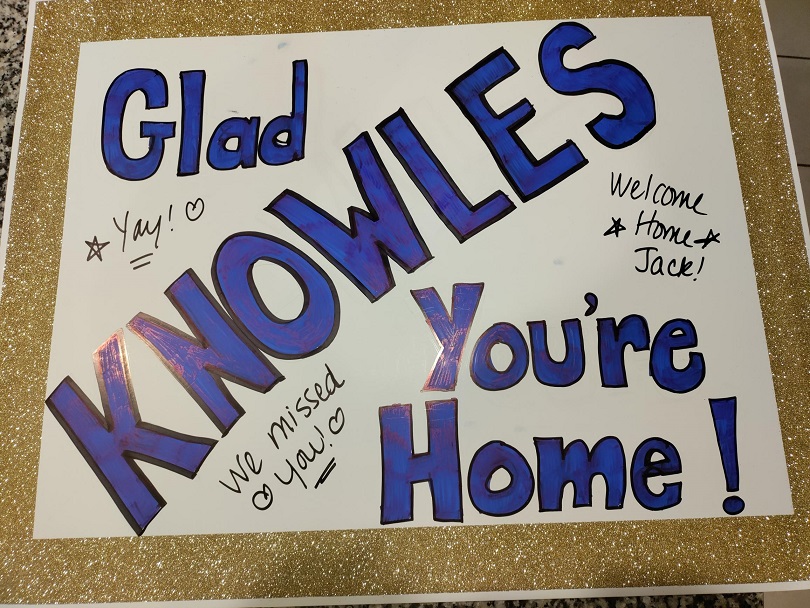 Glad
KNOWLES
Yay!
Welcome
Home
Jack!
You're
Home!
We missed
You!